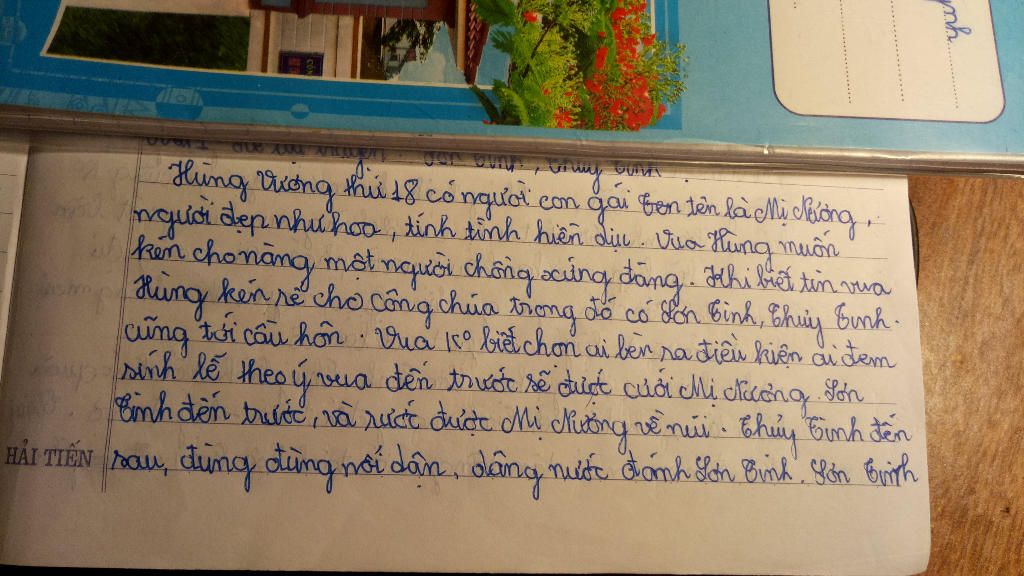 ynh
Sơn Tinh, Thủy Tinh
Hùng Vương thứ 18 có người con gái ten tên là Mị Nương,
người đẹp như hoa, tính tình hiền dịu. Vua Hùng muốn
kén cho nàng một người chồng xứng đáng. Khi biết tin vua
Hùng kén rể cho công chúa trong đó có Sơn Tinh, Thủy Tinh.
cũng tới cầu hôn. Vua ko biết chọn ai bèn ra điều kiện ai đem
sính lễ theo ý vua đến trước sẽ được cưới Mị Nương. Sơn
Tinh đến trước, và rước được Mị Nương về núi. Thủy Tinh đến
HẢI TIẾN
sau, đùng đùng nổi dận, dâng nước đánh Sơn Tinh. Sơn Tinh